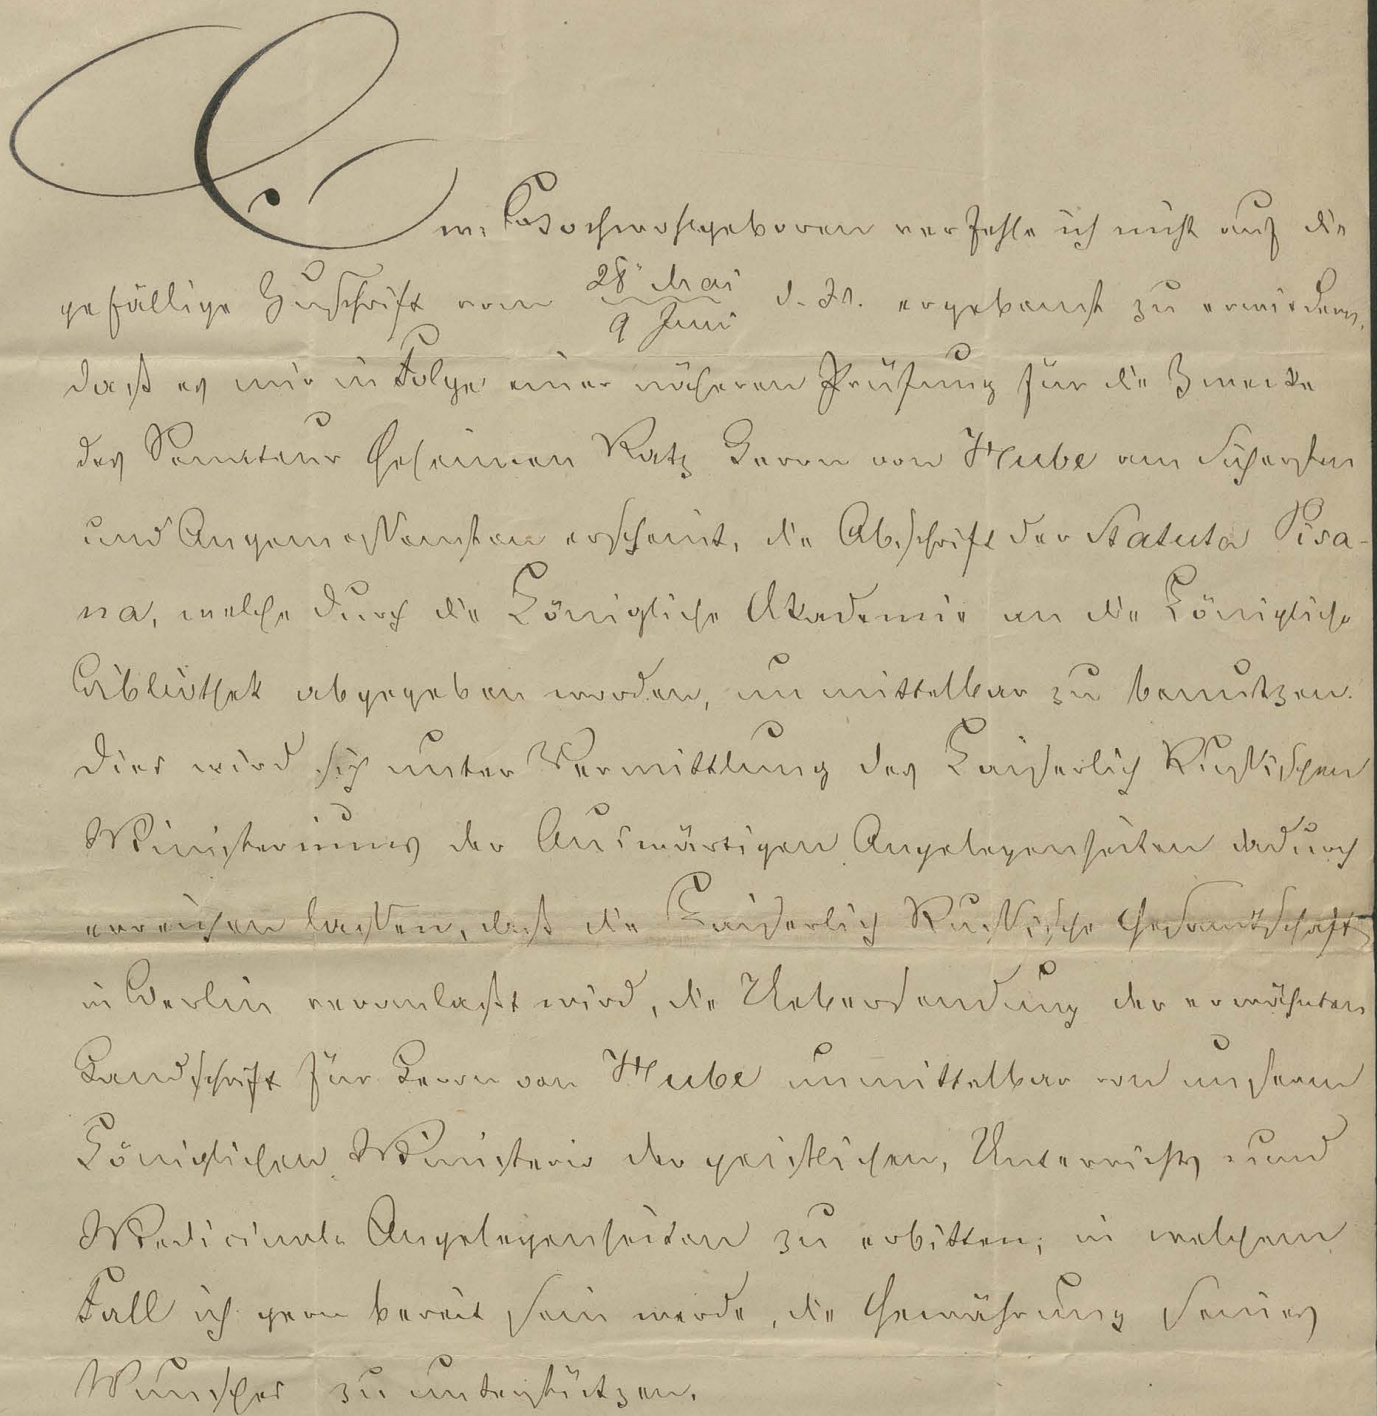 Ew. Hochwohlgeboren verfehle ich nicht auf die
gefällige Zuschrift vom 28 Mai / 9 Juni d. Js. ergebenst zu erwiedern,
daß es mir in Folge einer näheren Prüfung für die Zwecke
des Senateur Geheimen Raths Herrn von Hube am Sichersten
und Angemessensten erscheint, die Abschrift der Statuta Pisa-
na, welche durch die Königliche Akademie an die Königliche
Bibliothek abgegeben worden, unmittelbar zu benutzen.
Dies wird sich unter Vermittlung des Kaiserlich Russischen
Ministeriums der Auswärtigen Angelegenheiten dadurch
erreichen lassen, daß die Kaiserlich Russische Gesandtschaft
in Berlin veranlaßt wird, die Uebersendung der erwähnten
Handschrift für Herrn von Hube unmittelbar von unserm
Königlichen Ministerio der geistlichen, Unterrichts und
Medicinal-Angelegenheiten zu erbitten, in welchem
Fall ich gern bereit sein werde, die Gewährung seines
Wunsches zu unterstützen.